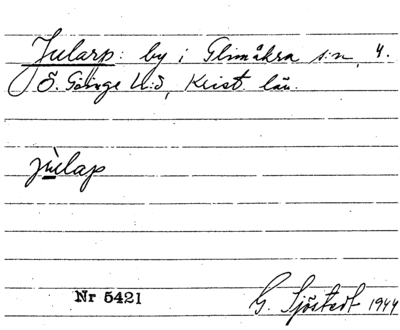 Jularp: by i Glimåkra s:n, 4.
Ö. Göinge h:d, Krist. län.
jùlap
Nr 5421
G. Sjöstedt 1944